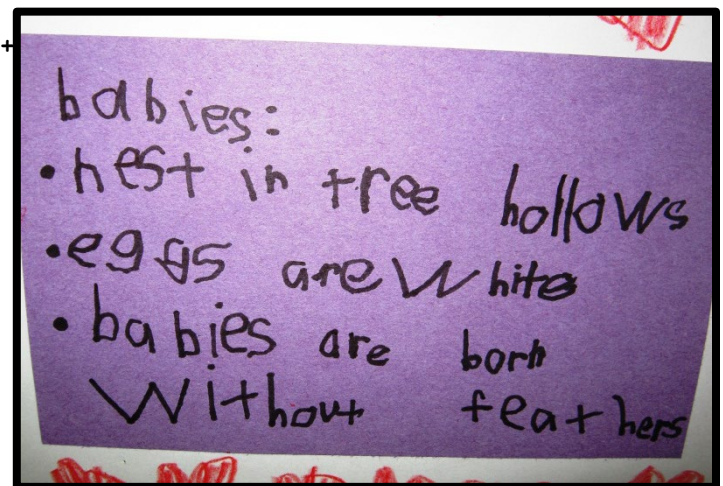 babies:
• nest in tree hollows
• eggs are white
• babies are born
without feathers